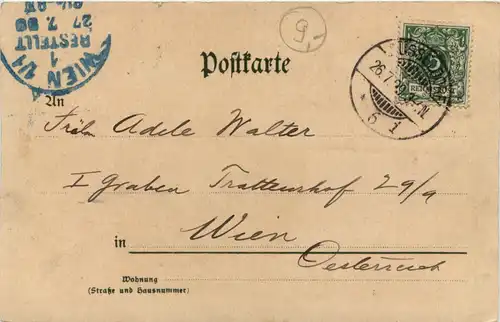 WIEN 1/1
1
BESTELLT
27 7 00
9,-
Postkarte
26.7.
* 5 i
An
Frln Adele Walter
I Graben Trattnerhof 29/9
in Wien
Oesterreich
Wohnung
(Straße und Hausnummer)